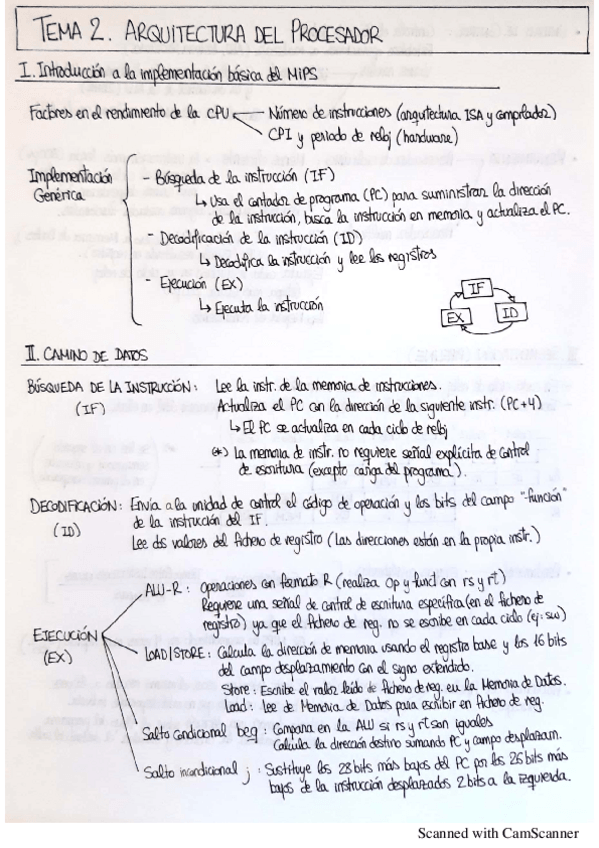 TEMA 2. ARQUITECTURA DEL PROCESADOR
I. Introducción a la implementación básica del MIPS
Factores en el rendimiento de la CPU
Número de instrucciones (arquitectura ISA y compilador)
CPI y periodo de reloj (hardware)
Implementación Genérica
- Búsqueda de la instrucción (IF)
↳ Usa el contador de programa (PC) para suministrar la dirección
de la instrucción, busca la instrucción en memoria y actualiza el PC.
- Decodificación de la instrucción (ID)
↳ Decodifica la instrucción y lee los registros
- Ejecución (EX)
↳ Ejecuta la instrucción
IF
EX
ID
II. CAMINO DE DATOS
BÚSQUEDA DE LA INSTRUCCIÓN: Lee la instr. de la memoria de instrucciones.
(IF) Actualiza el PC con la dirección de la siguiente instr. (PC+4)
↳ El PC se actualiza en cada ciclo de reloj
(*) La memoria de instr. no requiere señal explícita de control
de escritura (excepto carga del programa).
DECODIFICACIÓN: Envía a la unidad de control el código de operación y los bits del campo "función"
(ID) de la instrucción del IF.
Lee dos valores del fichero de registro (Las direcciones están en la propia instr.)
EJECUCIÓN
(EX)
ALU-R: Operaciones con formato R (realiza op y funct con rs y rt)
Requiere una señal de control de escritura específica (en el fichero de
registro) ya que el fichero de reg. no se escribe en cada ciclo (ej: sw)
LOAD/STORE: Calcula la dirección de memoria usando el registro base y los 16 bits
del campo desplazamiento con el signo extendido.
Store: Escribe el valor leído de fichero de reg. en la Memoria de Datos.
Load: Lee de Memoria de Datos para escribir en fichero de reg.
Salto condicional beq: Compara en la ALU si rs y rt son iguales
Calcula la dirección destino sumando PC y campo desplazam.
Salto incondicional j: Sustituye los 28 bits más bajos del PC por los 26 bits más
bajos de la instrucción desplazados 2 bits a la izquierda.
Scanned with CamScanner